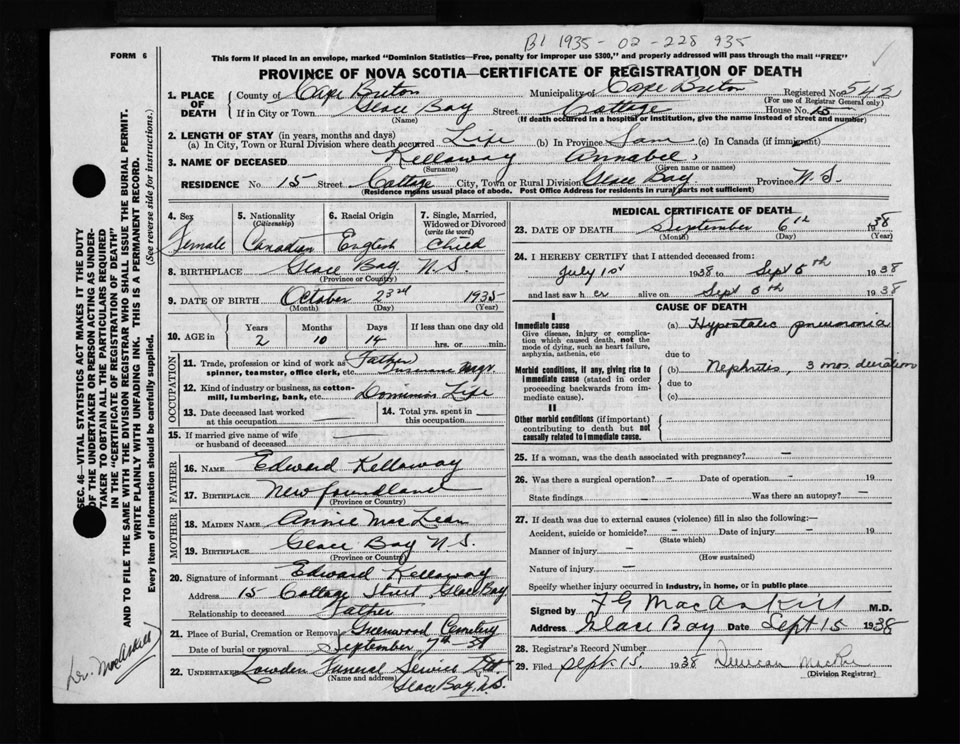 B1 1935 - 02 - 228 935
FORM 6
This form if placed in an envelope, marked "Dominion Statistics—Free, penalty for improper use $300," and properly addressed will pass through the mail "FREE"
PROVINCE OF NOVA SCOTIA—CERTIFICATE OF REGISTRATION OF DEATH
1. PLACE OF DEATH County of Cape Breton Municipality of Cape Breton Registered No. 542
(For use of Registrar General only)
If in City or Town Glace Bay Street Cottage House No. 15
(Name) (If death occurred in a hospital or institution, give the name instead of street and number)
2. LENGTH OF STAY (in years, months and days)
(a) In City, Town or Rural Division where death occurred Life (b) In Province Same (c) In Canada (if immigrant)
3. NAME OF DECEASED Kellaway Annabel
(Surname) (Given name or names)
RESIDENCE No. 15 Street Cottage City, Town or Rural Division Glace Bay Province N.S.
(Residence means usual place of abode. Post Office Address for residents in rural parts not sufficient)
4. Sex Female
5. Nationality (Citizenship) Canadian
6. Racial Origin English
7. Single, Married, Widowed or Divorced (write the word) Child
8. BIRTHPLACE Glace Bay N.S.
(Province or Country)
9. DATE OF BIRTH October 23rd 1935
(Month) (Day) (Year)
10. AGE in Years Months Days If less than one day old
2 10 14 hrs. or min.
OCCUPATION
11. Trade, profession or kind of work as spinner, teamster, office clerk, etc. Father Insurance Mgr.
12. Kind of industry or business, as cotton-mill, lumbering, bank, etc. Dominion Life
13. Date deceased last worked at this occupation —
14. Total yrs. spent in this occupation —
15. If married give name of wife or husband of deceased —
FATHER
16. NAME Edward Kellaway
17. BIRTHPLACE Newfoundland
(Province or Country)
MOTHER
18. MAIDEN NAME Annie MacLean
19. BIRTHPLACE Glace Bay N.S.
(Province or Country)
20. Signature of informant Edward Kellaway
Address 15 Cottage Street, Glace Bay
Relationship to deceased Father
21. Place of Burial, Cremation or Removal Greenwood Cemetery
Date of burial or removal September 7th 38
22. UNDERTAKER Lowden Funeral Service Ltd.
(Name and address) Glace Bay, N.S.
MEDICAL CERTIFICATE OF DEATH
23. DATE OF DEATH September 6th 1938
(Month) (Day) (Year)
24. I HEREBY CERTIFY that I attended deceased from:
July 1st 1938 to Sept 5th 1938
and last saw her alive on Sept 5th 1938
CAUSE OF DEATH
I
Immediate cause
Give disease, injury or complication which caused death, not the mode of dying, such as heart failure, asphyxia, asthenia, etc
(a) Hypostatic pneumonia
due to
Morbid conditions, if any, giving rise to immediate cause (stated in order proceeding backwards from immediate cause).
(b) Nephrites, 3 mos. duration
due to
(c)
II
Other morbid conditions (if important) contributing to death but not causally related to immediate cause.
25. If a woman, was the death associated with pregnancy? —
26. Was there a surgical operation? - Date of operation - 19
State findings Was there an autopsy? -
27. If death was due to external causes (violence) fill in also the following:—
Accident, suicide or homicide? - Date of injury 19
(State which)
Manner of injury —
(How sustained)
Nature of injury —
Specify whether injury occurred in industry, in home, or in public place
Signed by F G MacAskill M.D.
Address Glace Bay Date Sept 15 1938
28. Registrar's Record Number
29. Filed Sept. 15 1938 Duncan MacRae
(Division Registrar)
SEC. 46—VITAL STATISTICS ACT MAKES IT THE DUTY
OF THE UNDERTAKER OR PERSON ACTING AS UNDER-
TAKER TO OBTAIN ALL THE PARTICULARS REQUIRED
IN THE "CERTIFICATE OF REGISTRATION OF DEATH"
AND TO FILE THE SAME WITH THE DIVISION REGISTRAR WHO SHALL ISSUE THE BURIAL PERMIT.
WRITE PLAINLY WITH UNFADING INK. THIS IS A PERMANENT RECORD.
Every item of information should be carefully supplied. (See reverse side for instructions.)
Dr. MacAskill